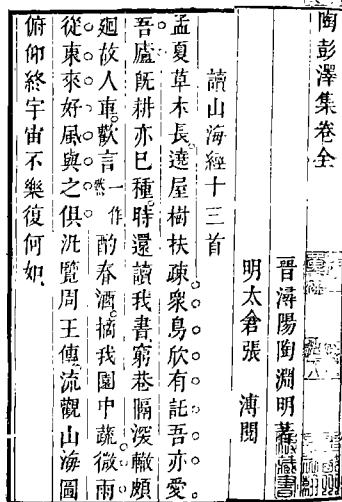 陶彭澤集卷全
晉潯陽陶淵明著
明太倉張　溥閱
讀山海經十三首
孟夏草木長遶屋樹扶疎衆鳥欣有託吾亦愛
吾廬旣耕亦已種時還讀我書窮巷隔深轍頗
廻故人車歡言一作然酌春酒摘我園中蔬微雨
從東來好風與之俱汎覽周王傳流觀山海圖
俯仰終宇宙不樂復何如